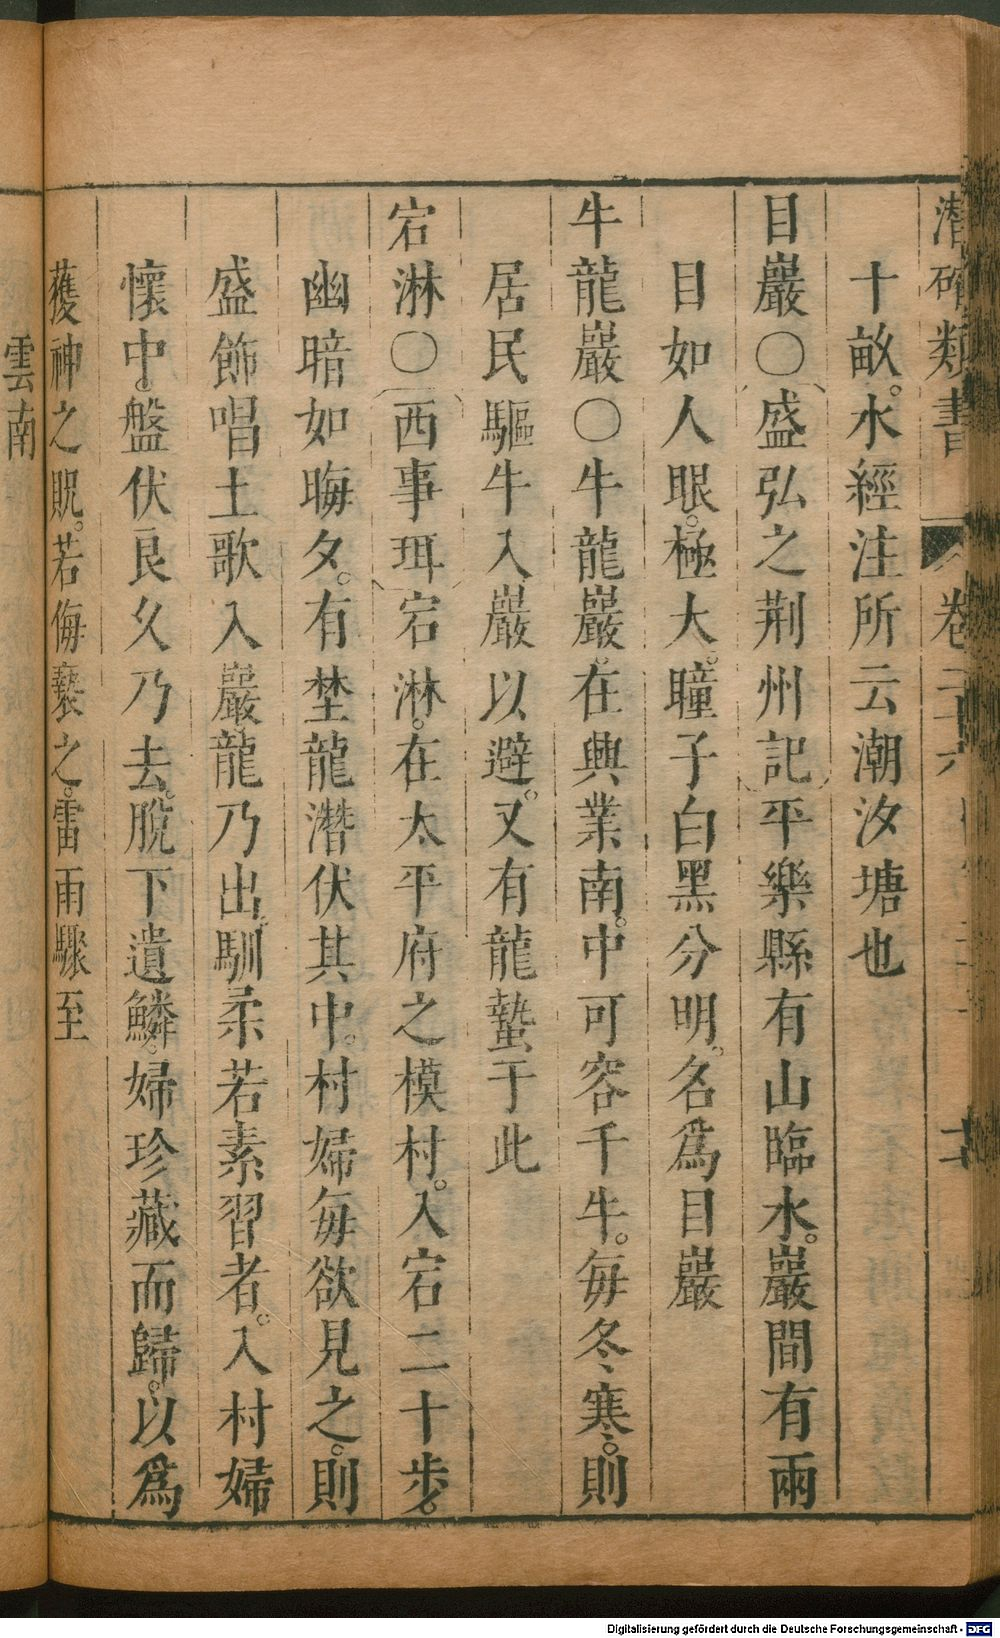 潛確類書 卷二十六
十畝。水經注所云潮汝塘也
目巖〇盛弘之荆州記平樂縣有山臨水。巖間有兩
目如人眼。極大。瞳子白黑分明。名爲目巖
牛龍巖〇牛龍巖。在興業南。中可容千牛。每冬寒。則
居民驅牛入巖以避。又有龍蟄于此
宕淋〇西事珥宕淋。在太平府之模村。入宕二十步。
幽暗如晦夕。有埜龍潛伏其中。村婦每欲見之。則
盛飾唱土歌入巖龍乃出。馴柔若素習者。入村婦
懷中。盤伏良久乃去。脫下遺鱗。婦珍藏而歸。以爲
䕶神之貺。若侮褻之。雷雨驟至
雲南
Digitalisierung gefördert durch die Deutsche Forschungsgemeinschaft - DFG